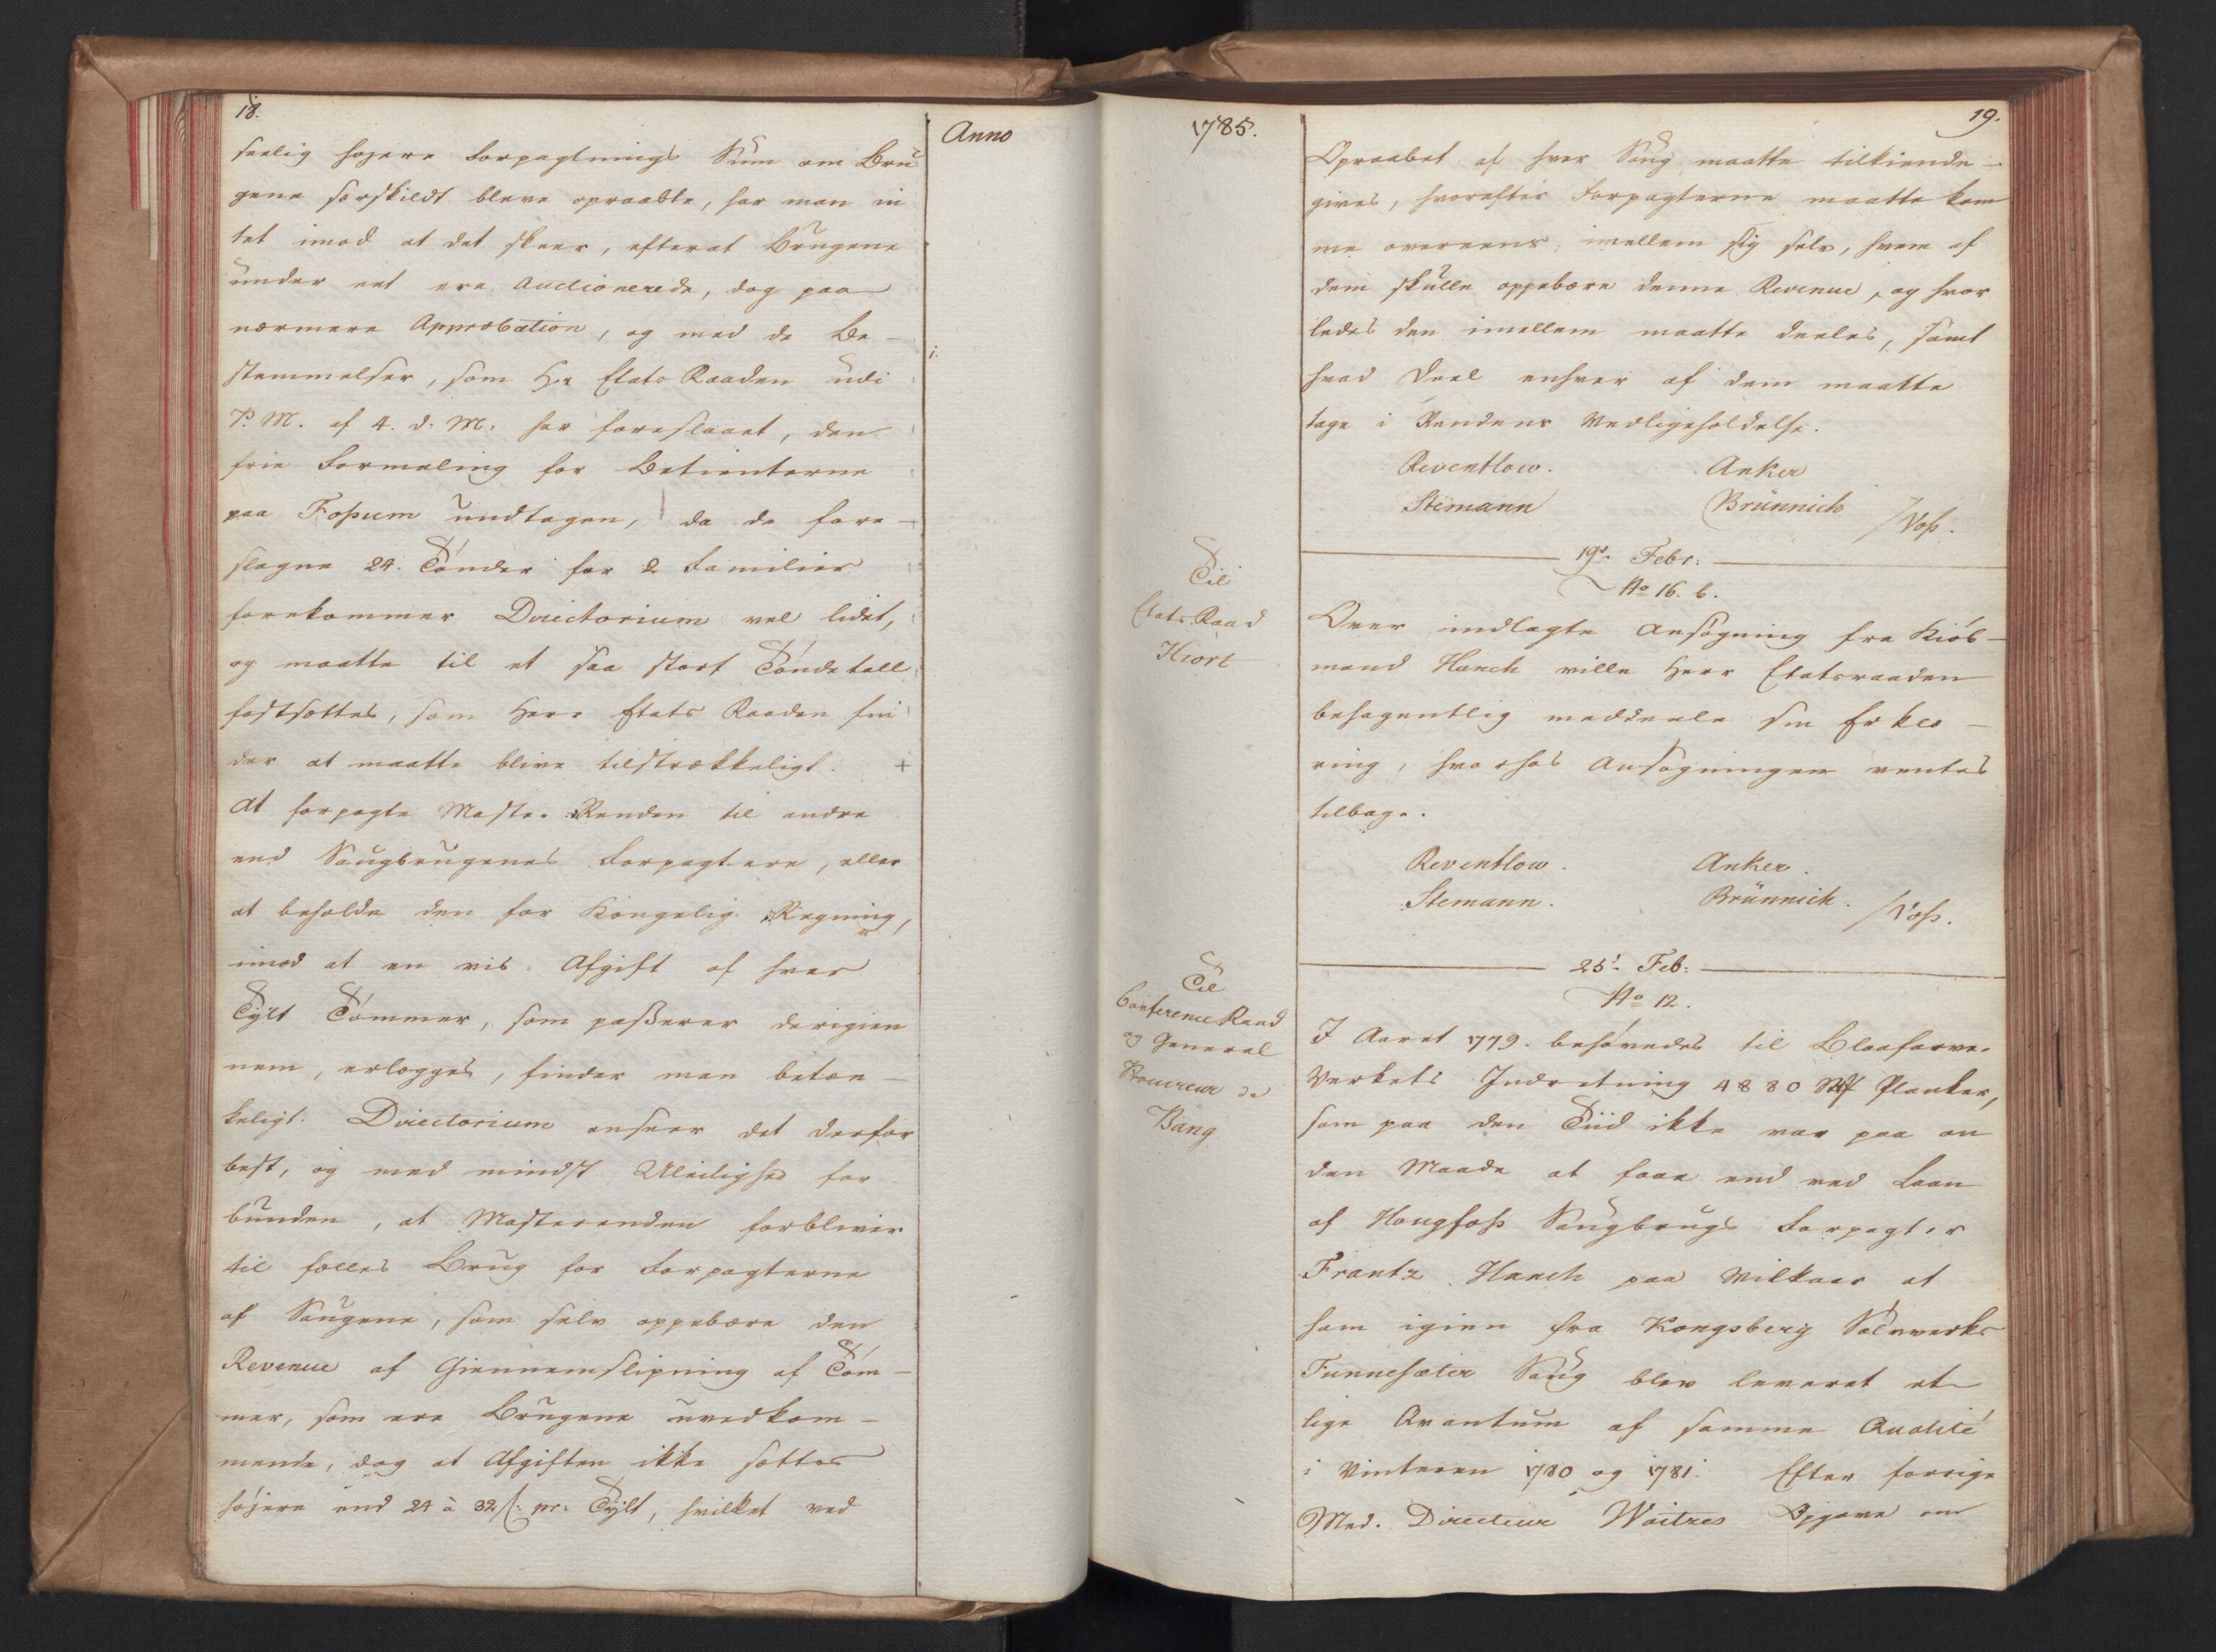 18.
Anno
seelig højere Forpagtnings Sum om Bru
gene særskildt bleve opraabte, har man in
tet imod at det skeer, efterat Brugene
under eet ere Auctionerede, dog paa
nærmere Approbation, og med de Be-
stemmelser, som Hr Etats Raaden udi
P. M. af 4. d: M: har foreslaaet, den
frie Formaling for Betienterne
paa Foßum undtagen, da de fore-
slagne 24. Tønder for 2 Familier
forekommer Directorium vel lidet,
og maatte til et saa stort Tøndetall
fastsættes, som Herr Etats Raaden fin
der at maatte blive tilstrækkeligt. +
At forpagte Maste-Renden til andre
end Saugbrugenes Forpagtere, eller
at beholde den for Kongelig Regning,
imod at en vis Afgift af hver
Tylt Tømmer, som paßerer derigien
nem, erlægges, finder man betæn-
keligt. Directorium anseer det derfor
best, og med mindst Uleilighed for
bunden, at Masterenden forbliver
til fælles Brug for Forpagterne
af Saugene, som selv oppebære den
Revenue af Giennemslipning af Tøm-
mer, som ere Brugene uvedkom-
mende, dog at Afgiften ikke sættes
højere end 24 à 32 s: pr: Tylt, hvilket ved
1785.
19.
Opraabet af hver Saug maatte tilkiende-
gives, hvorefter Forpagterne maatte kom
me overeens imellem sig selv, hvem af
dem skulle oppebære denne Revenue, og hvor
ledes den imellem maatte deeles, samt
hvad Deel enhver af dem maatte
tage i Rendens Vedligeholdelse.
Reventlow. Anker
Stemann Brünnich /Voß.
19d. Febr:
No 16. b.
Til
Etats Raad
Hiort
Over indlagte Ansøgning fra Kiøb-
mand Hanch ville Herr Etatsraaden
behagentlig meddeele sin Erklæ-
ring, hvorhos Ansøgningen ventes
tilbage.
Reventlow. Anker.
Stemann. Brünnich. /Voß.
25d. Feb:
No 12.
Til
Conference Raad
og General
Procureur de
Bang
I Aaret 1779. behøvedes til Blaafarve-
Verkets Indretning 4880 Planker,
som paa den Tiid ikke var paa an
den Maade at faae end ved Laan
af Hougfoß Saugbrugs Forpagter
Frantz Hanch paa Vilkaar at
ham igien fra Kongsberg Sølvverks
Funnesæter Saug blev leveret et
lige Qvantum af samme Qualité
i Vinteren 1780 og 1781. Efter forrige
Med. Directeur Waitzes Opgave om